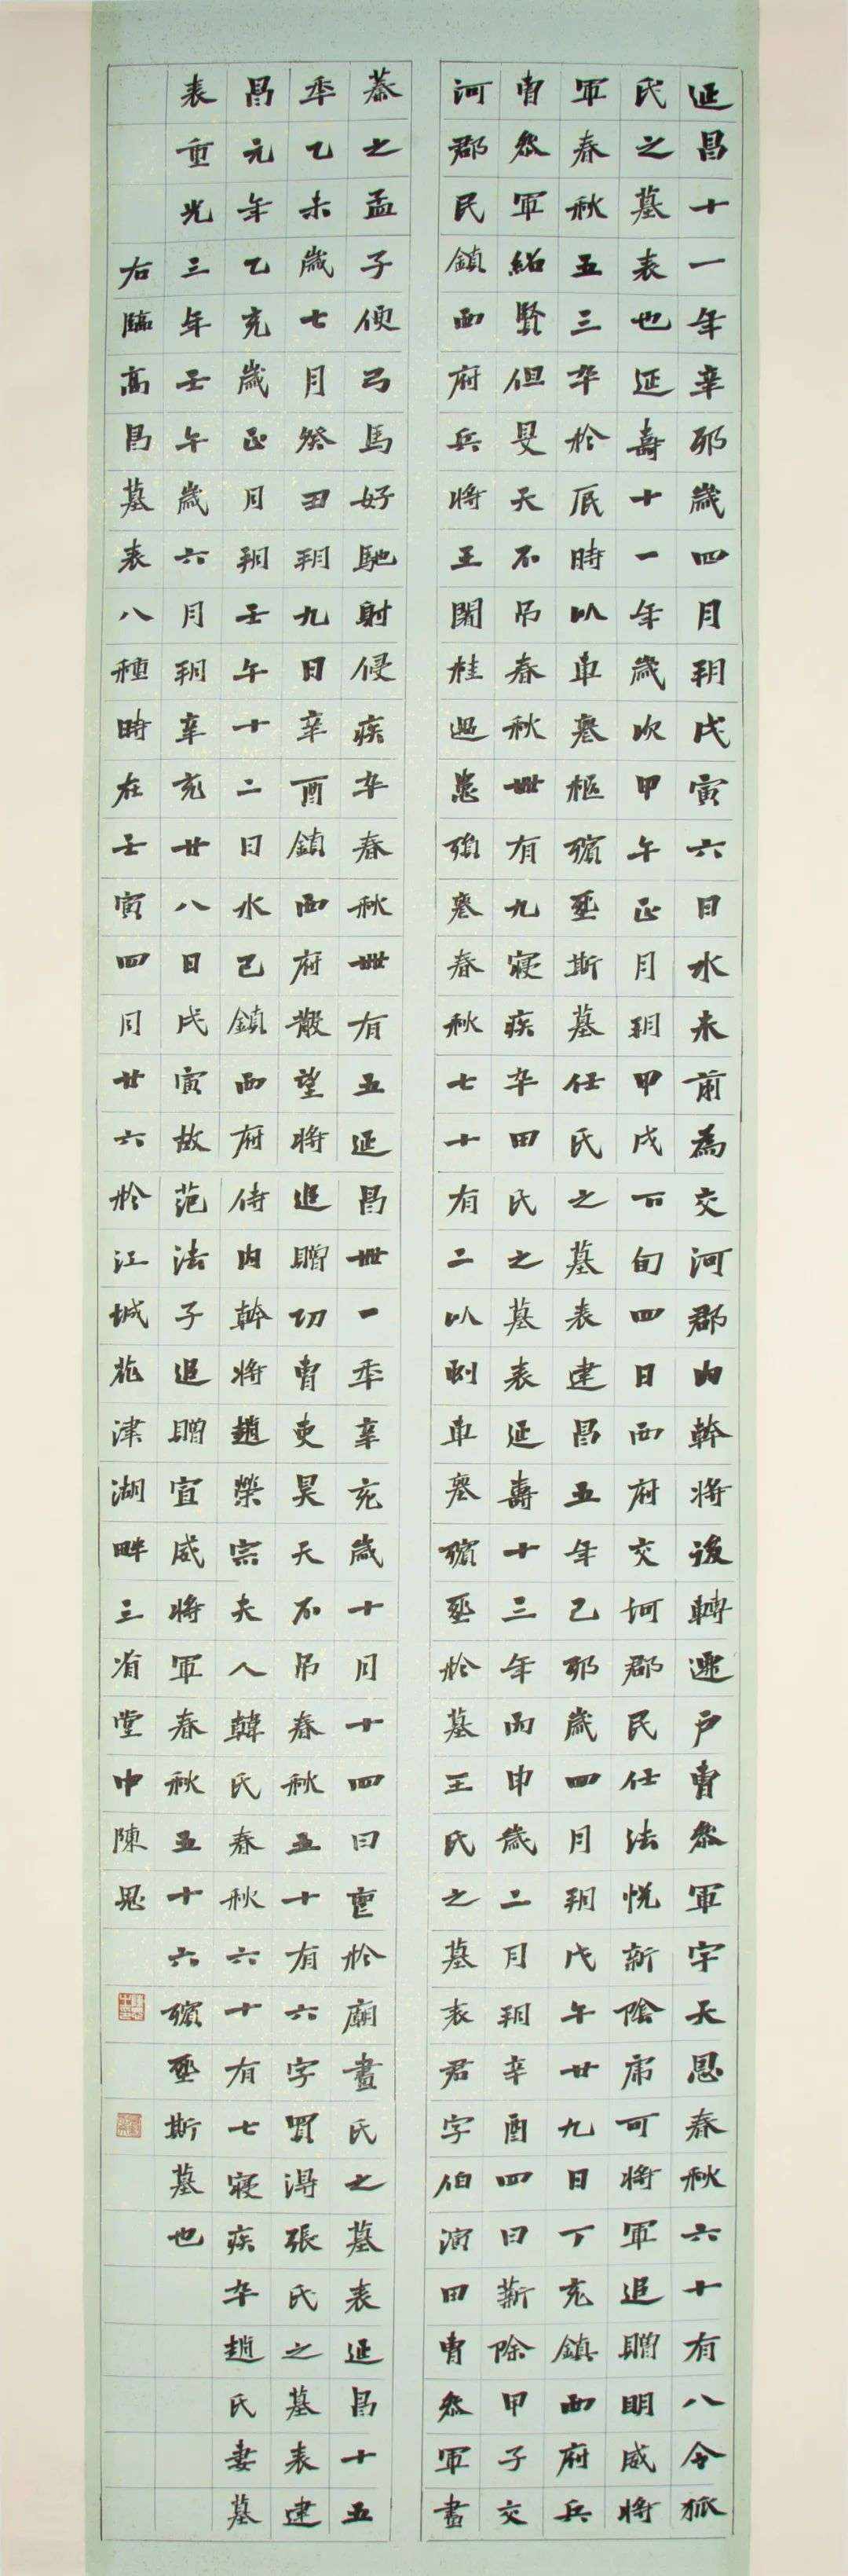 延昌十一年辛卯歲四月朔戊寅六日水未前為交河郡內幹將後轉遷戶曹叅軍字天恩春秋六十有八令狐
氏之墓表也延壽十一年歲次甲午正月朔甲戌下旬四日西府交河郡民任法悅新除虎可將軍追贈明威將
軍春秋五三卒於辰時以車轝柩殯塟斯墓任氏之墓表建昌五年己卯歲四月朔戊午廿九日丁亥鎮西府兵
曹叅軍紹賢但旻天不吊春秋卌有九寢疾卒田氏之墓表延壽十三年丙申歲二月朔辛酉四日薪除甲子交
河郡民鎮西府兵將王闍桂遇患殞轝春秋七十有二以到車轝殯塟於墓王氏之墓表君字伯演田曹叅軍畫
纂之孟子便弓馬好馳射侵疾卒春秋卌有五延昌卅一年辛亥歲十月十四日塟於廟畫氏之墓表延昌十五
年乙未歲七月癸丑朔九日辛酉鎮西府散望將追贈功曹吏昊天不吊春秋五十有六字買得張氏之墓表建
昌元年乙亥歲正月朔壬午十二日水己鎮西府侍內幹將趙榮宗夫人韓氏春秋六十有七寢疾卒趙氏妻墓
表重光三年壬午歲六月朔辛亥廿八日戊寅故范法子追贈宣威將軍春秋五十六殯塟斯墓也
右臨高昌墓表八種時在壬寅四月廿六於江城花津湖畔三省堂中陳晃